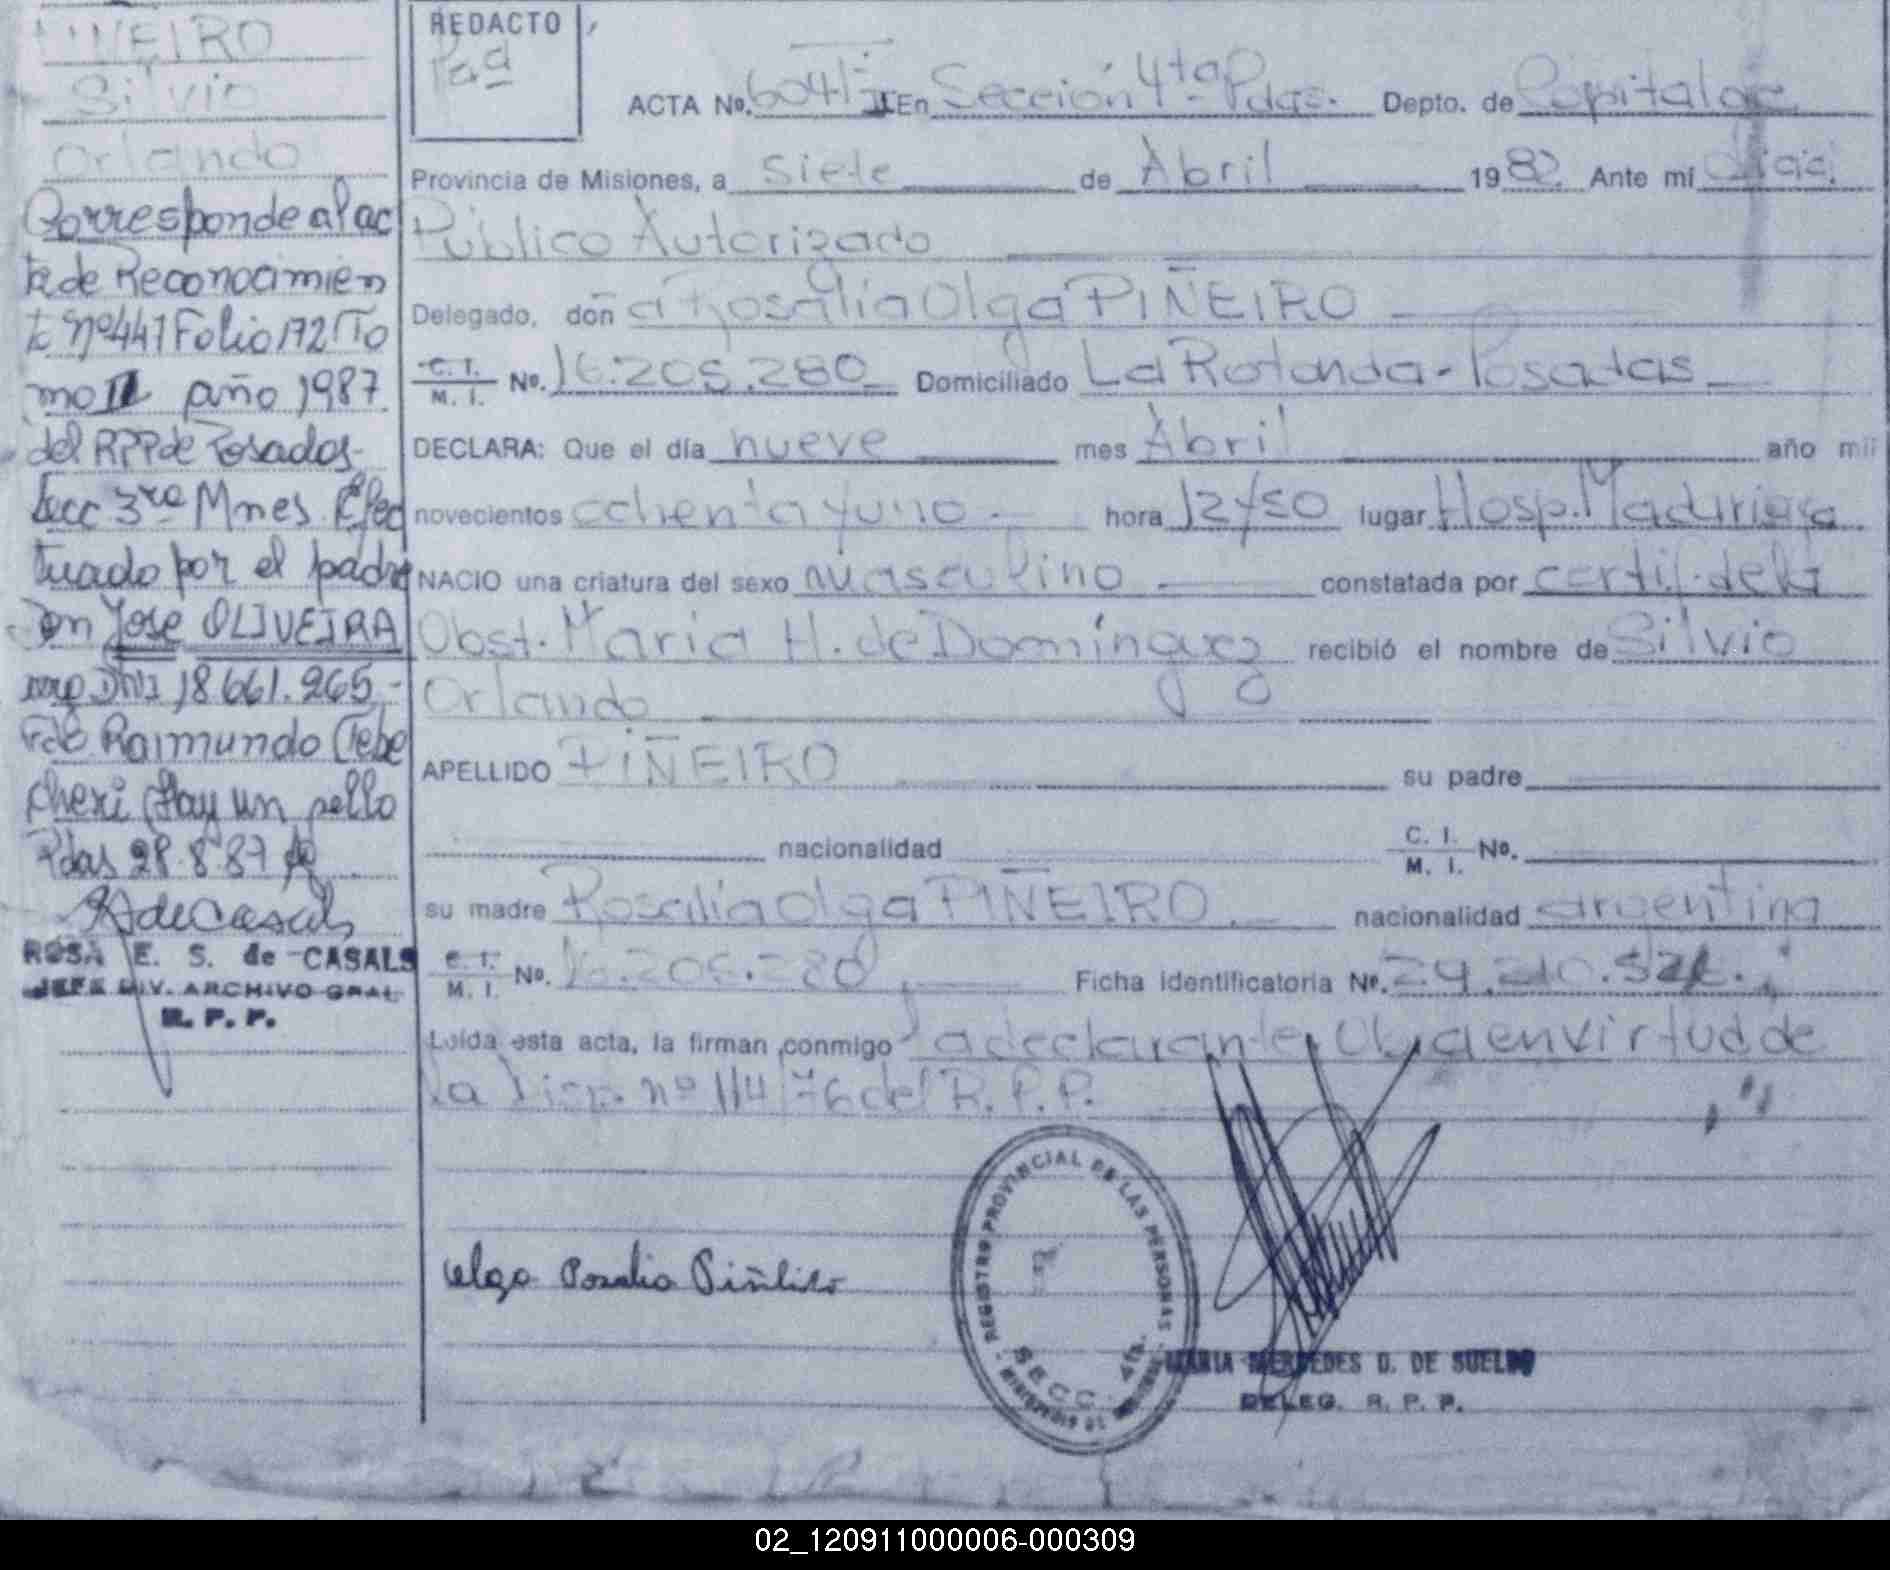 PIÑEIRO
Silvio
Orlando
Corresponde al ac
ta de Reconocimien
to nº 447 Folio 172 To
mo II año 1987
del RPP de Posadas
Secc 3ra Mnes. Efec
tuado por el padre
Don Jose OLIVEIRA
DNI 18661.265.-
Fdo Raimundo
Hay un sello
Pdas 28.8.87
RS de Casals
ROSA E. S. de CASALS
JEFE DIV. ARCHIVO GRAL
R. P. P.
REDACTO
ACTA Nº. 604 En Sección 4ta Pdas. Depto. de Capital
Provincia de Misiones, a siete de Abril 1982. Ante mí Oficial
Público Autorizado
Delegado, doña Rosalia Olga PIÑEIRO
C. I.
M. I. Nº. 16.205.280 Domiciliado La Rotonda - Posadas
DECLARA: Que el día nueve mes Abril año mil
novecientos ochenta y uno hora 12 y 50 lugar Hosp. Madariaga
NACIO una criatura del sexo masculino constatada por certif. de la
Obst. Maria H. de Domínguez recibió el nombre de Silvio
Orlando
APELLIDO PIÑEIRO su padre
nacionalidad C. I.
M. I. Nº.
su madre Rosalia Olga PIÑEIRO. nacionalidad argentina
C. I.
M. I. Nº. 16.205.280 Ficha identificatoria Nº. 29.210.
Leída esta acta, la firman conmigo la declarante en virtud de
la Disp. nº 114/76 del R. P. P.
Olga Rosalia Piñeiro
REGISTRO PROVINCIAL DE LAS PERSONAS
SECC. 4ta.
MARIA MERCEDES D. DE SUELDO
DELEG. R. P. P.
02_120911000006-000309